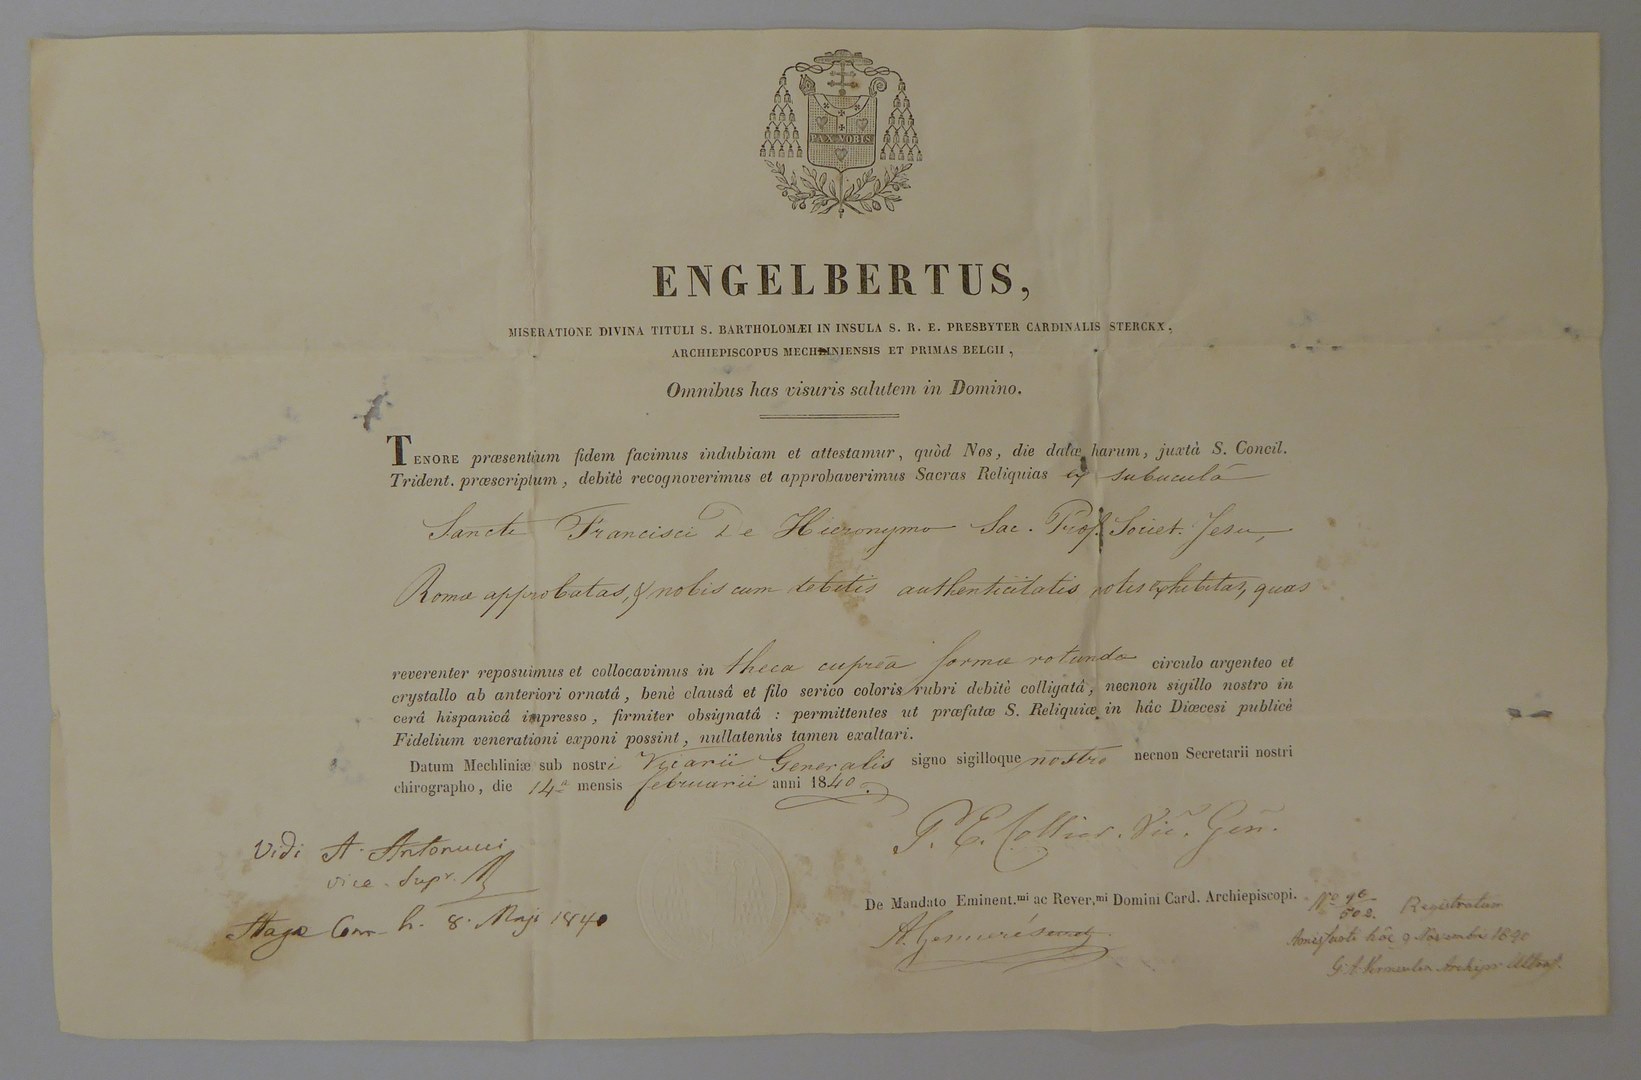 PAX VOBIS
ENGELBERTUS,
MISERATIONE DIVINA TITULI S. BARTHOLOMÆI IN INSULA S. R. E. PRESBYTER CARDINALIS STERCKX,
ARCHIEPISCOPUS MECHLINIENSIS ET PRIMAS BELGII,
Omnibus has visuris salutem in Domino.
TENORE præsentium fidem facimus indubiam et attestamur, quòd Nos, die datæ harum, juxtà S. Concil.
Trident. præscriptum, debitè recognoverimus et approbaverimus Sacras Reliquias ex subuculâ
Sancti Francisci De Hieronymo Sac. Prof. Societ. Jesu,
Romæ approbatas, & nobis cum debitis authenticitatis notis exhibitas, quas
reverenter reposuimus et collocavimus in theca cupreâ formæ rotundæ circulo argenteo et
crystallo ab anteriori ornatâ, benè clausâ et filo serico coloris rubri debitè colligatâ, necnon sigillo nostro in
cerâ hispanicâ impresso, firmiter obsignatâ : permittentes ut præfatæ S. Reliquiæ in hâc Diœcesi publicè
Fidelium venerationi exponi possint, nullatenùs tamen exaltari.
Datum Mechliniæ sub nostri Vicarii Generalis signo sigilloque nostro necnon Secretarii nostri
chirographo, die 14â mensis februarii anni 1840.
P. E. Collier. Vic. Gen.
Vidi A. Antonucci
Vice-Supr.
Hagæ Com. h. 8. Maji 1840
De Mandato Eminent.mi ac Rever.mi Domini Card. Archiepiscopi.
No 40
502. Registratum
hâc 9 Novembri 1840